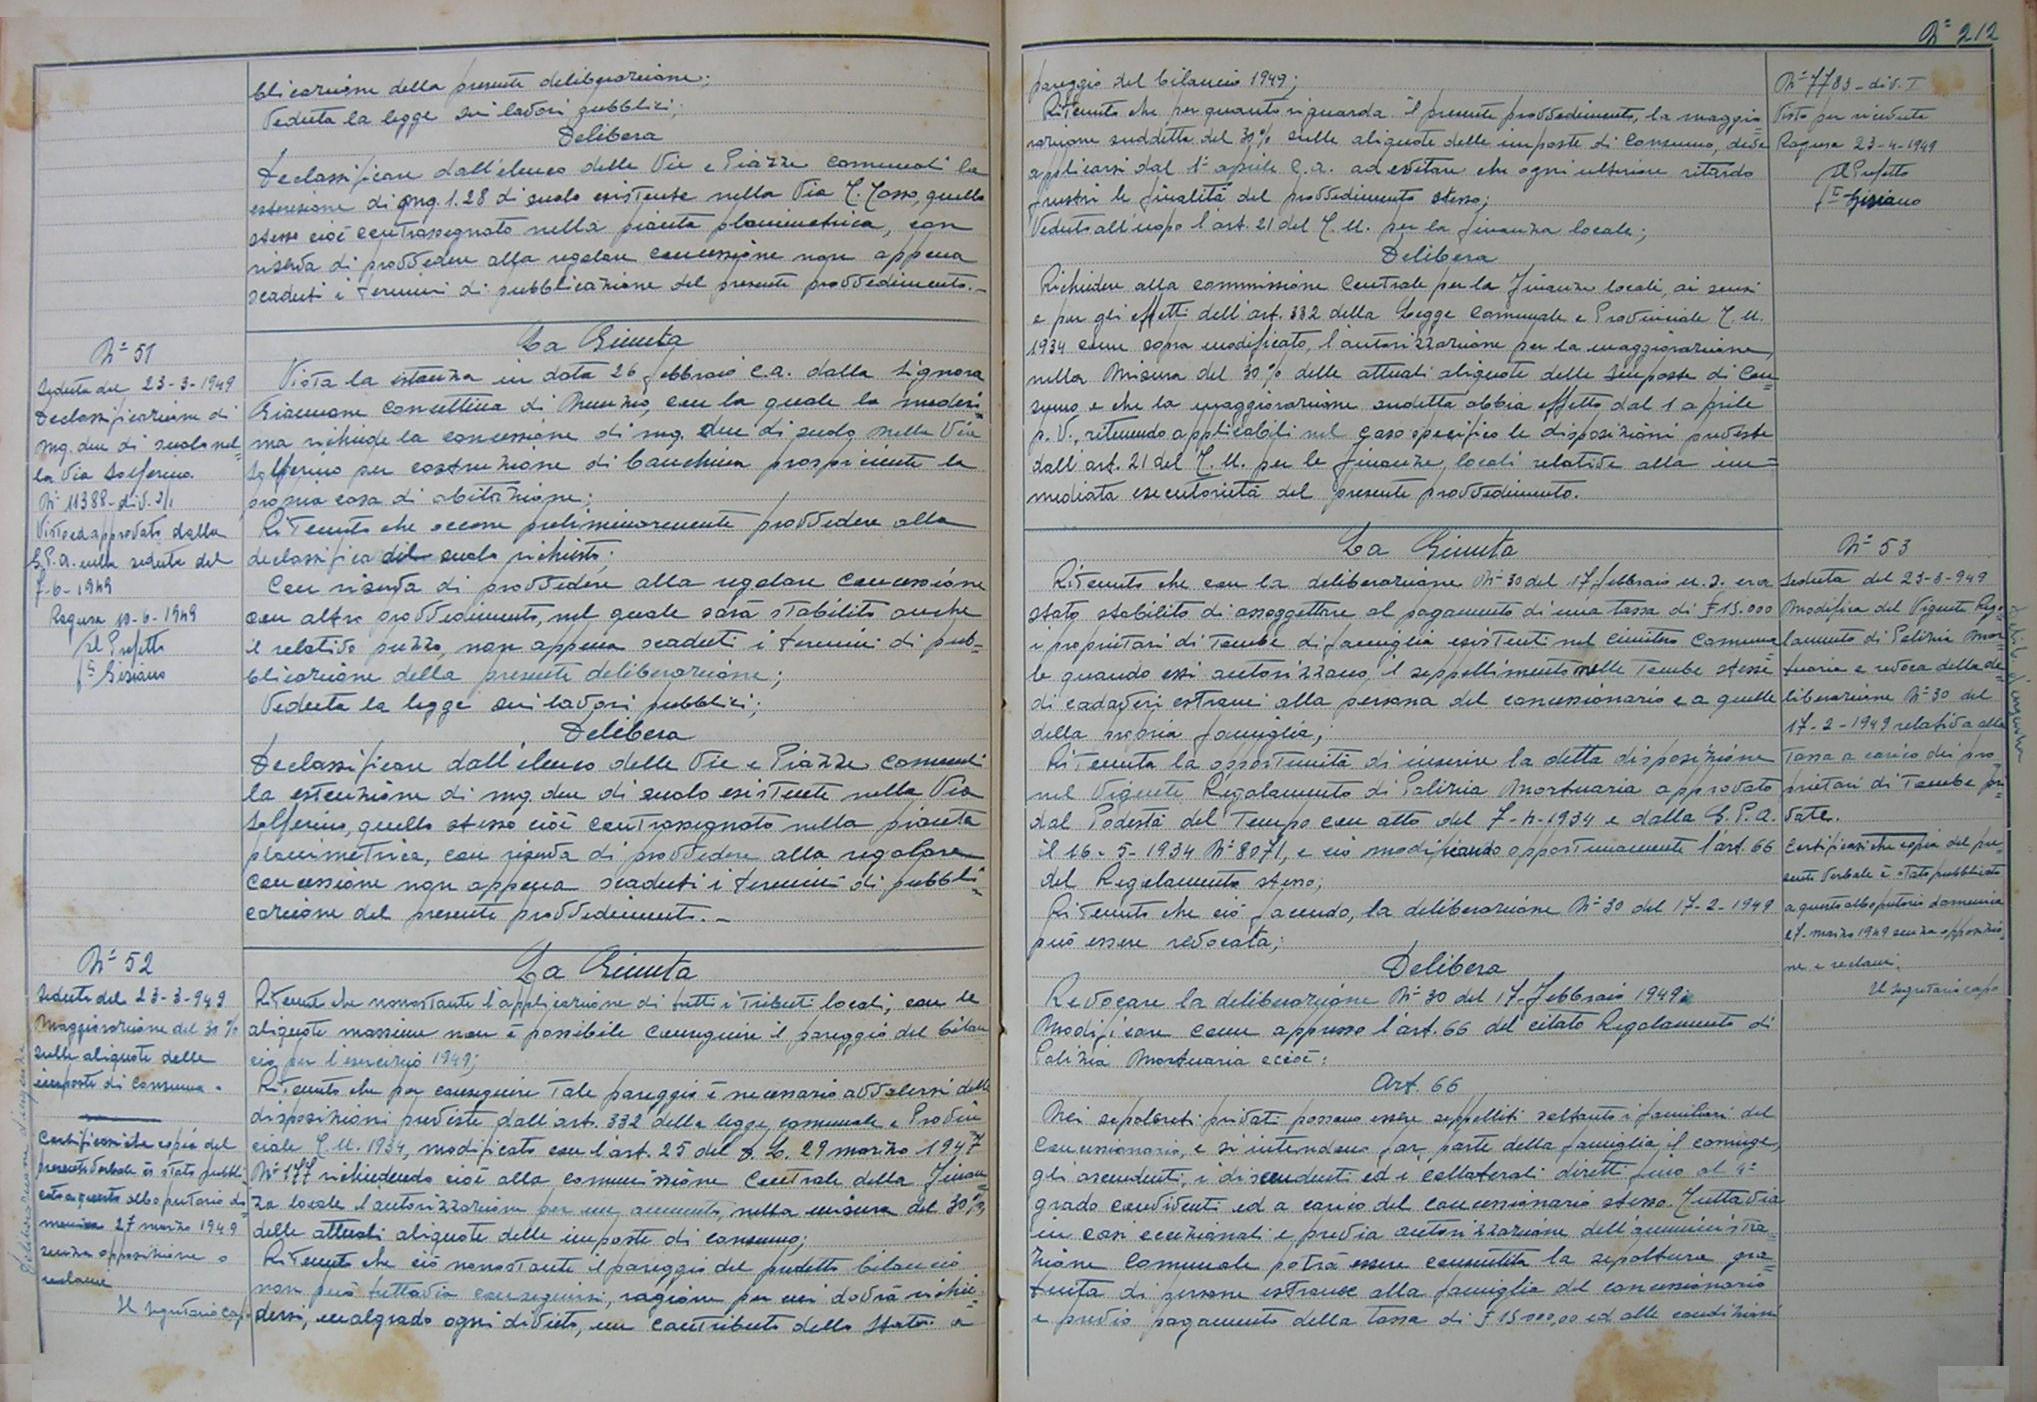 blicazione della presente deliberazione;
Veduta la legge sui lavori pubblici;
Delibera
Declassificare dall'elenco delle Vie e Piazze comunali la
estensione di mq. 1.28 di suolo esistente nella Via T. Tasso, quello
stesso cioè contrassegnato nella pianta planimetrica, con
riserva di provvedere alla regolare concessione non appena
scaduti i termini di pubblicazione del presente provvedimento.-
N° 51
Seduta del 23-3-1949
Declassificazione di
mq. due di suolo nel=
la Via Solferino.
N° 11388-div. 2/1
Visto ed approvato dalla
G.P.A. nella seduta del
7-6-1949
Ragusa 10-6-1949
Il Prefetto
La Giunta
Vista la istanza in data 26 febbraio c.a. dalla Signora
Giannone Concettina di Nunzio, con la quale la medesi=
ma richiede la concessione di mq. due di suolo nella Via
Solferino per costruzione di banchina prospiciente la
propria casa di abitazione;
Ritenuto che occorre preliminarmente provvedere alla
declassifica del suolo richiesto;
Con riserva di provvedere alla regolare concessione
con altro provvedimento, nel quale sarà stabilito anche
il relativo prezzo, non appena scaduti i termini di pub=
blicazione della presente deliberazione;
Veduta la legge sui lavori pubblici;
Delibera
Declassificare dall'elenco delle Vie e Piazze comunali
la estensione di mq. due di suolo esistente nella Via
Solferino, quello stesso cioè contrassegnato nella pianta
planimetrica, con riserva di provvedere alla regolare
concessione non appena scaduti i termini di pubbli=
cazione del presente provvedimento.-
N° 52
Seduta del 23-3-949
Maggiorazione del 30%
sulle aliquote delle
imposte di consumo.
Certificasi che copia del
presente verbale è stato pubbli
cato a questo albo pretorio do=
menica 27 marzo 1949
senza opposizione o
reclami
Il Segretario Capo
La Giunta
Ritenuto che nonostante l'applicazione di tutti i tributi locali, con le
aliquote massime non è possibile conseguire il pareggio del bilan
cio per l'esercizio 1949;
Ritenuto che per conseguire tale pareggio è necessario avvalersi delle
disposizioni previste dall'art. 332 della legge comunale e Provin
ciale T.U. 1934, modificato con l'art. 25 del D.L. 29 marzo 1947
N° 177 richiedendo cioè alla commissione Centrale della Finan
za locale l'autorizzazione per un aumento, nella misura del 30%,
delle attuali aliquote delle imposte di consumo;
Ritenuto che ciò nonostante il pareggio del predetto bilancio
non può tuttavia conseguirsi, ragione per cui dovrà richie=
dersi, malgrado ogni divieto, un contributo dello Stato a
N° 212
pareggio del bilancio 1949;
Ritenuto che per quanto riguarda il presente provvedimento, la maggio
razione suddetta del 30% sulle aliquote delle imposte di consumo, deve
applicarsi dal 1° aprile c.a. ad evitare che ogni ulteriore ritardo
frustri le finalità del provvedimento stesso;
Veduto all'uopo l'art. 21 del T.U. per la finanza locale;
Delibera
Richiedere alla commissione Centrale per la Finanza locale, ai sensi
e per gli effetti dell'art. 332 della Legge Comunale e Provinciale T.U.
1934 come sopra modificato, l'autorizzazione per la maggiorazione,
nella misura del 30% delle attuali aliquote delle Imposte di Con=
sumo e che la maggiorazione sudetta abbia effetto dal 1 aprile
p.v., ritenendo applicabili nel caso specifico le disposizioni previste
dall'art. 21 del T.U. per le finanze locali relative alla im=
mediata esecutorietà del presente provvedimento.
N° 7783-div. I
Visto per ricevuta
Ragusa 23-4-1949
Il Prefetto
La Giunta
Ritenuto che con la deliberazione N° 30 del 17 febbraio u.s. era
stato stabilito di assoggettare al pagamento di una tassa di £ 15.000
i proprietari di tombe di famiglia esistenti nel cimitero comuna
le quando essi autorizzano il seppellimento nelle tombe stesse
di cadaveri estranei alla persona del concessionario e a quelle
della propria famiglia;
Ritenuta la opportunità di inserire la detta disposizione
nel vigente Regolamento di Polizia Mortuaria approvato
dal Podestà del Tempo con atto del 7-4-1934 e dalla G.P.A.
il 16-5-1934 N° 8071, e ciò modificando opportunamente l'art. 66
del Regolamento stesso;
Ritenuto che ciò facendo, la deliberazione N° 30 del 17-2-1949
può essere revocata;
Delibera
Revocare la deliberazione N° 30 del 17 febbraio 1949
Modificare come appresso l'art. 66 del citato Regolamento di
Polizia Mortuaria e cioè:
Art. 66
Nei sepolcreti privati possono essere seppelliti soltanto i familiari del
Concessionario, e si intendono far parte della famiglia il coniuge,
gli ascendenti, i discendenti ed i collaterali diretti fino al 4°
grado conviventi ed a carico del concessionario stesso. Tuttavia
in casi eccezionali e previa autorizzazione dell'amministra=
zione Comunale potrà essere consentita la sepoltura gra=
tuita di persone estranee alla famiglia del concessionario
e previo pagamento della tassa di £ 15000,00 ed alle condizioni
N° 53
Seduta del 23-3-949
Modifica del Vigente Rego
lamento di Polizia Mor=
tuaria e revoca della de=
liberazione N° 30 del
17-2-1949 relativa alla
Tassa a carico dei pro
prietari di Tombe pri=
vate.
Certificasi che copia del pre=
sente verbale è stato pubblicato
a questo albo pretorio domenica
27 marzo 1949 senza opposizio=
ne e reclami.
Il Segretario capo